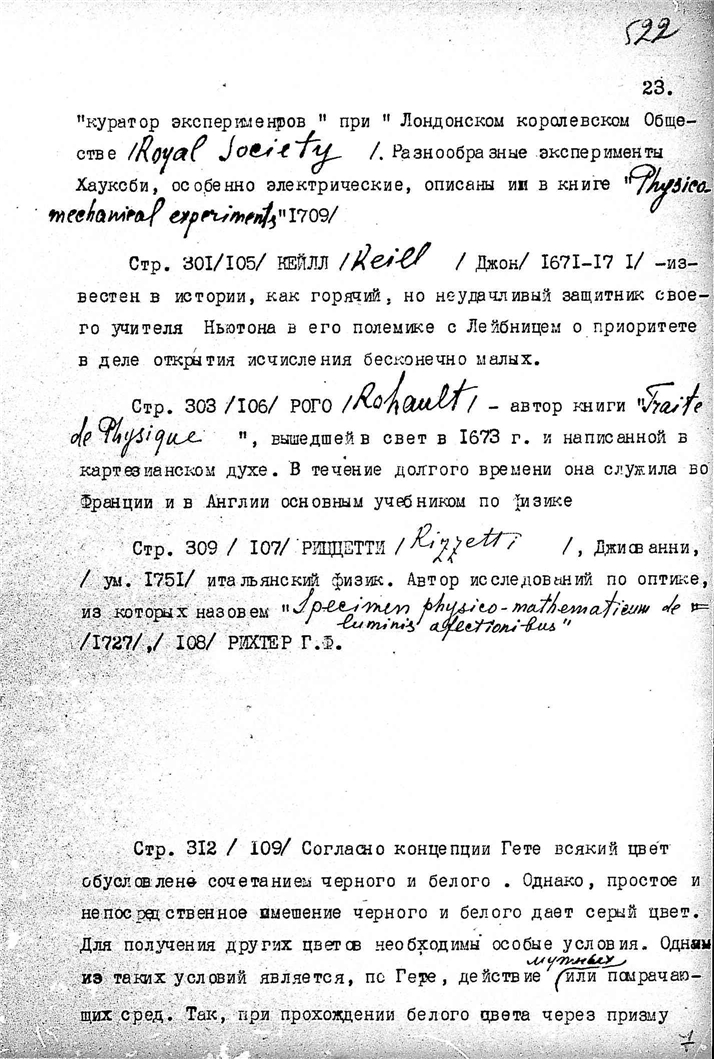 522
23.
"куратор экспериментов " при " Лондонском королевском Обще-
стве /Royal Society /. Разнообразные эксперименты
Хауксби, особенно электрические, описаны им в книге "Physico-
mechanical experiments"1709/
Стр. 301/105/ КЕЙЛЛ /Keill / Джон/ 1671-17 1/ -из-
вестен в истории, как горячий, но неудачливый защитник свое-
го учителя Ньютона в его полемике с Лейбницем о приоритете
в деле открытия исчисления бесконечно малых.
Стр. 303 /106/ РОГО /Rohault/ - автор книги "Traite
de Physique ", вышедшей в свет в 1673 г. и написанной в
картезианском духе. В течение долгого времени она служила во
Франции и в Англии основным учебником по физике
Стр. 309 / 107/ РИЦЦЕТТИ /Rizzetti /, Джиованни,
/ ум. 1751/ итальянский физик. Автор исследований по оптике,
из которых назовем "Specimen physico-mathematicum de =
luminis affectionibus"
/1727/,/ 108/ РИХТЕР Г.Ф.
Стр. 312 / 109/ Согласно концепции Гете всякий цвет
обусловлено сочетанием черного и белого . Однако, простое и
непосредственное смешение черного и белого дает серый цвет.
Для получения других цветов необходимы особые условия. Одним
мутных
из таких условий является, по Гете, действие (или помрачаю-
щих сред. Так, при прохождении белого цвета через призму